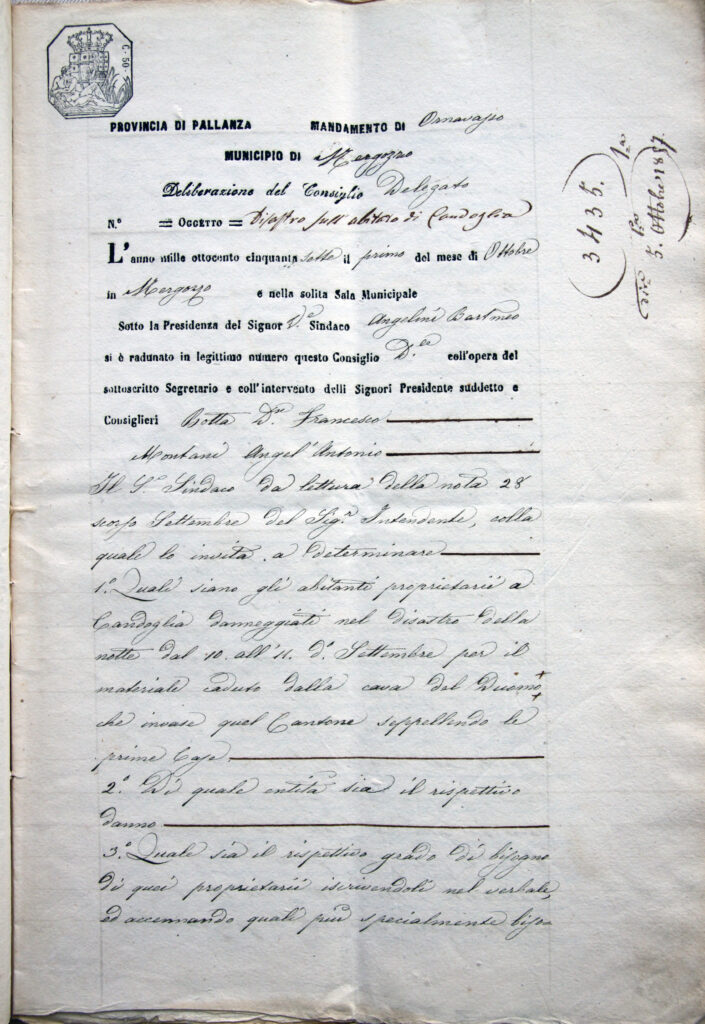 C. 50
PROVINCIA DI PALLANZA MANDAMENTO DI Ornavasso
MUNICIPIO DI Mergozzo
Deliberazione del Consiglio Delegato
N.º = OGGETTO = Disastro sull'abitato di Candoglia
L'anno mille ottocento cinquanta sette il primo del mese di Ottobre
in Mergozzo e nella solita Sala Municipale
Sotto la Presidenza del Signor V.e Sindaco Angelini Bartmeo
si è radunato in legittimo numero questo Consiglio D.to coll'opera del
sottoscritto Segretario e coll'intervento delli Signori Presidente suddetto e
Consiglieri Botta D.r Francesco
Montani Angel'Antonio
Il S.r Sindaco da lettura della nota 28
scorso Settembre del Sig.r Intendente, colla
quale lo invita a determinare
1.º Quali siano gli abitanti proprietarii a
Candoglia danneggiati nel disastro della
notte dal 10. all'11. d.º Settembre per il
materiale caduto dalla cava del Duomo
che invase quel Cantone seppellendo le
prime Case.
2.º Di quale entità sia il rispettivo
danno
3.º Quale sia il rispettivo grado di bisogno
di quei proprietarii iscrivendoli nel verbale,
ed accennando quali più specialmente biso
3435.
5. Ottobre 1857.